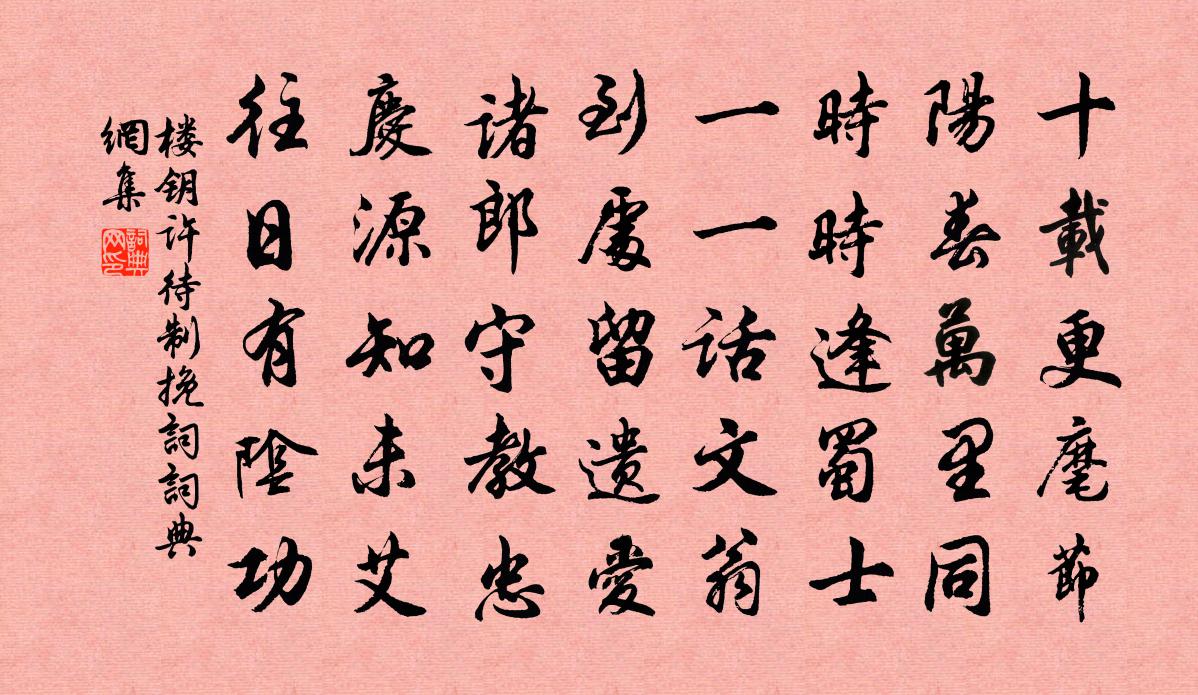 十載更麾節
陽春萬里同
時時逢蜀士
一一話文翁
到處留遺愛
諸郎守教忠
慶源知未艾
往日有陰功
楼钥许待制挽詞詞典
網集
詞典网印